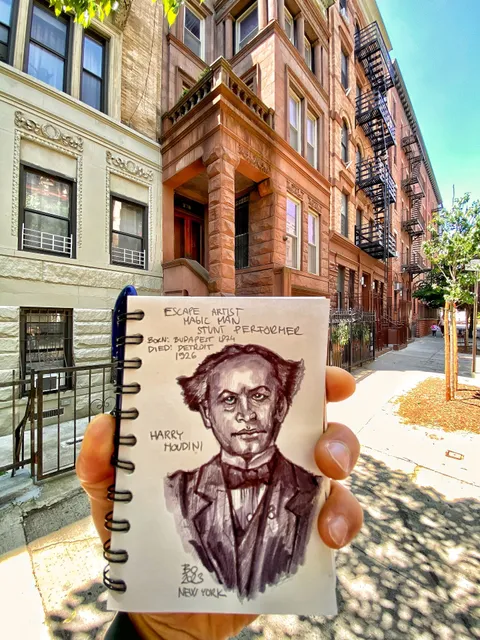 ESCAPE ARTIST
MAGIC MAN
STUNT PERFORMER
BORN: BUDAPEST 1874
DIED: DETROIT
1926
HARRY
HOUDINI
BO
2023
NEW YORK